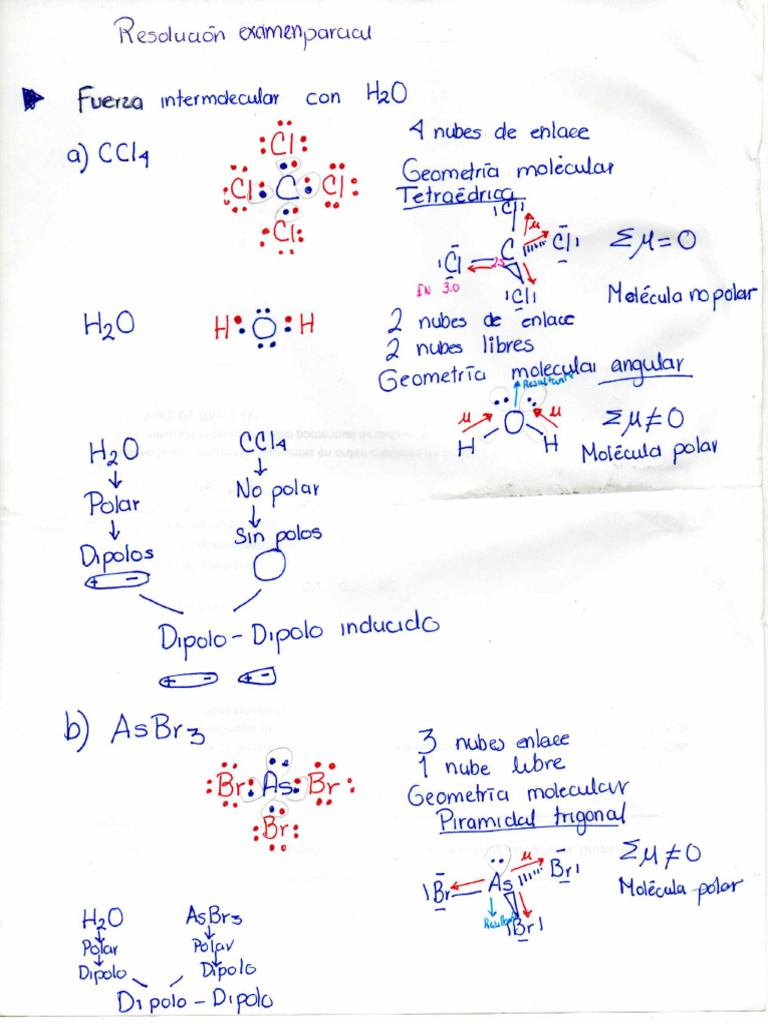 Resolución examen parcial
Fuerza intermolecular con H₂O
a) CCl₄
Cl
Cl C Cl
Cl
4 nubes de enlace
Geometría molécular
Tetraédrica
Cl
μ
Cl C Cl
2.5
EN 3.0
Cl
Σμ = 0
Molécula no polar
H₂O
H O H
2 nubes de enlace
2 nubes libres
Geometría molecular angular
Resultante
μ μ
H O H
Σμ ≠ 0
Molécula polar
H₂O CCl₄
Polar No polar
Dipolos Sin polos
+ -
Dipolo - Dipolo inducido
+ - + -
b) AsBr₃
Br As Br
Br
3 nubes enlace
1 nube libre
Geometría molecular
Piramidal trigonal
μ
Br As Br
Resultante
Br
Σμ ≠ 0
Molécula polar
H₂O AsBr₃
Polar Polar
Dipolo Dipolo
Dipolo - Dipolo